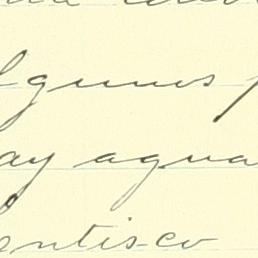 lgunos p
ay agua
entisco